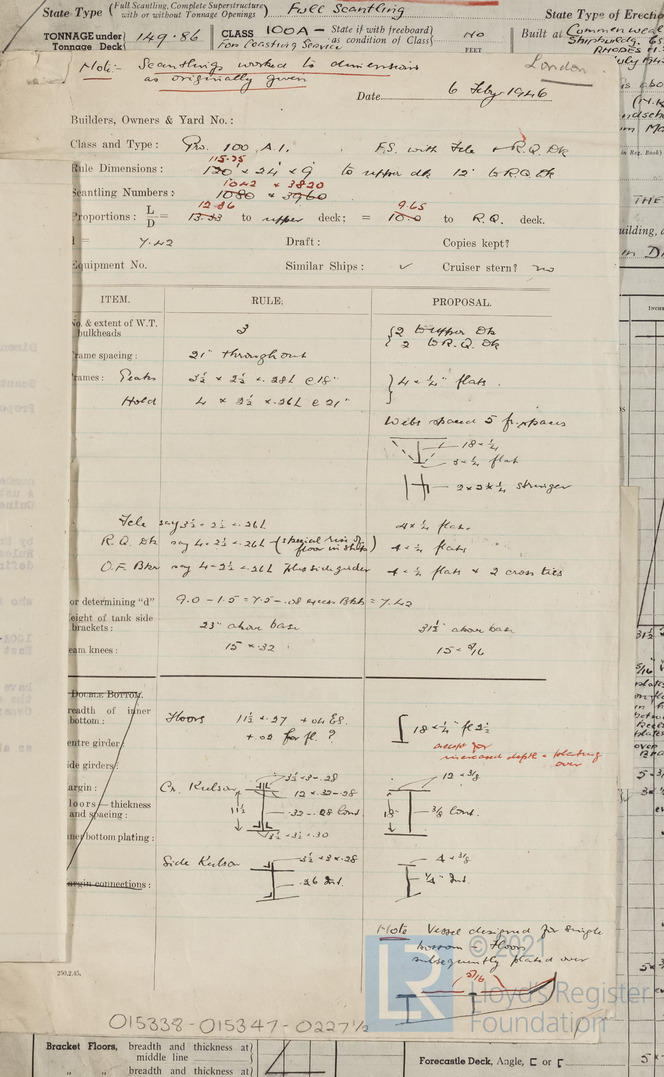 State Type (Full Scantling, Complete Superstructure with or without Tonnage Openings) Full Scantling
State Type of Erecti
TONNAGE under Tonnage Deck 149.86
CLASS 100A
State if with freeboard as condition of Class No
For Coasting Service
FEET
Built at
Note:- Scantlings worked to dimensions
as originally given
London
Date 6 Feby 1946
Builders, Owners & Yard No.:
Class and Type: Pro. 100 A.1. F.S. with Fcle & R.Q. Dk
115.75
Rule Dimensions: 120 × 24 × 9 to upper dk 12 to R.Q. Dk
1042 × 3820
Scantling Numbers: 1080 × 3960
12.86 9.65
Proportions: L/D = 13.33 to upper deck; = 10.0 to R.Q. deck.
= 7.42 Draft: Copies kept?
Equipment No. Similar Ships: ✓ Cruiser stern? no
ITEM. RULE. PROPOSAL.
No. & extent of W.T. bulkheads 3 2 to upper Dk
2 to R.Q. Dk
rame spacing: 21" throughout
rames: Peaks 3½ × 2½ × .26L @ 18" 4 × ¼" flats.
Hold 4 × 2½ × .26L @ 21"
Webs spaced 5 fr. spaces
18 × ¼
3 × ¼ flat
2 × 2 × ¼ stringer
Fcle say 3½ × 2½ × .26L 4 × ¼ flats.
R.Q. Dk say 4 × 2½ × .26L (special rise of floor in ships) 4 × ¼ flats
O.F. Bkr say 4 × 2½ × .26L plus side girder 4 × ¼ flats × 2 cross ties
or determining "d" 9.0 - 1.5 = 7.5 - .08 excess Bkts = 7.42
eight of tank side brackets: 23" above base 31½" above base
eam knees: 15 × .32 15 × 5/16
DOUBLE BOTTOM.
readth of inner bottom: Floors 11½ × .27 + .04 E.S. 18 × ¼" fl 2½
+ .02 for fl. ?
accept for
increased depth & plating
over
entre girder
ide girders:
argin:
Cr. Keelson 3½ × 3 × .28 12 × 3/8
12 × .32 - .28
11½ .32 - .28 Cont 18" 3/8 Cont.
3½ × 3½ × .30
loors—thickness and spacing:
ner bottom plating:
Side Keelson 3½ × 3 × .28 4 × 3/8
.26 Int. ¼" Int.
argin connections:
Note Vessel designed for single
bottom - Floors
subsequently plated over
5/16
250,2,45.
© 2021
LR
Lloyd's Register
Foundation
015338-015347-0227½
Bracket Floors, breadth and thickness at middle line
" " breadth and thickness at
Forecastle Deck, Angle, [ or [